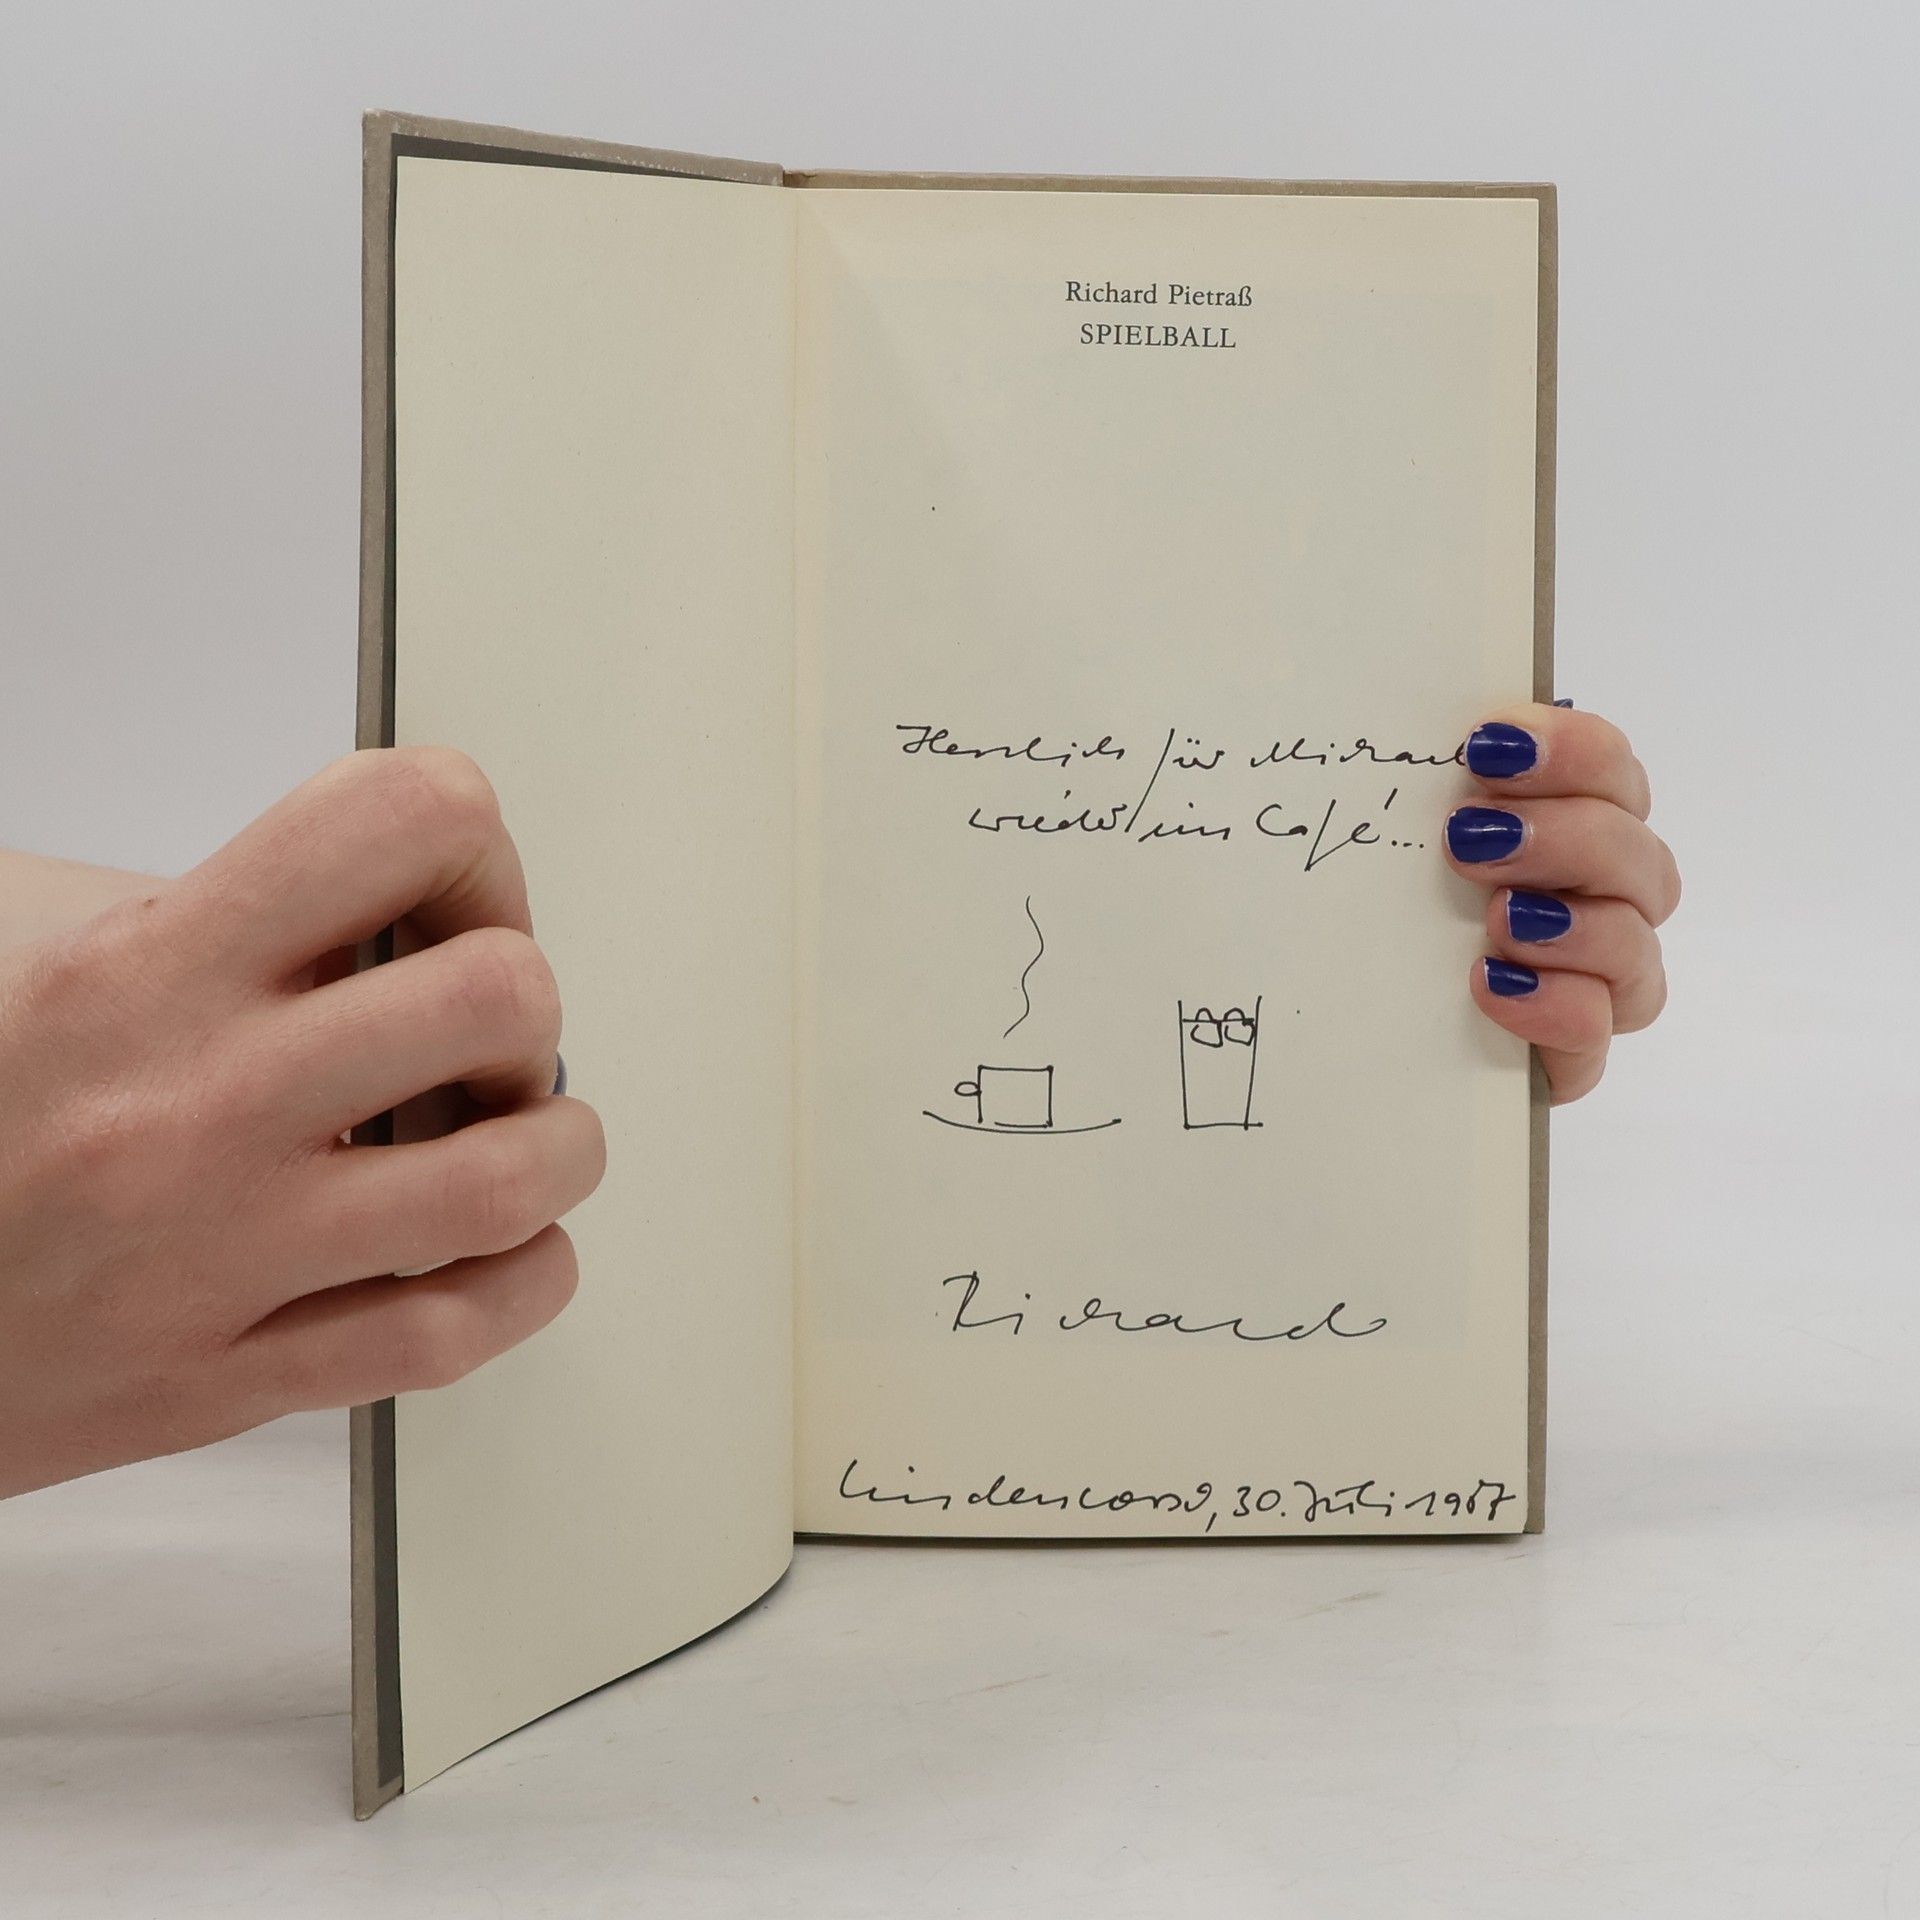 Richard Pietraß
SPIELBALL
Herzlich für Michael
wieder im Café...
Richard
Lindencorso, 30. Juli 1987